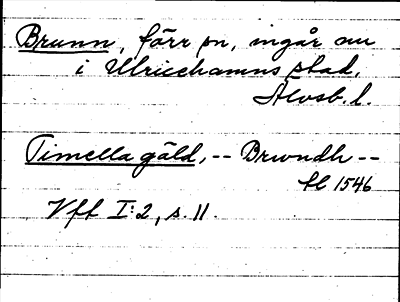 Brunn, förr sn, ingår nu
i Ulricehamns stad,
Älvsb. l.
Timella gäld, -- Brwndh --
fl 1546
Vff I:2, s. 11.